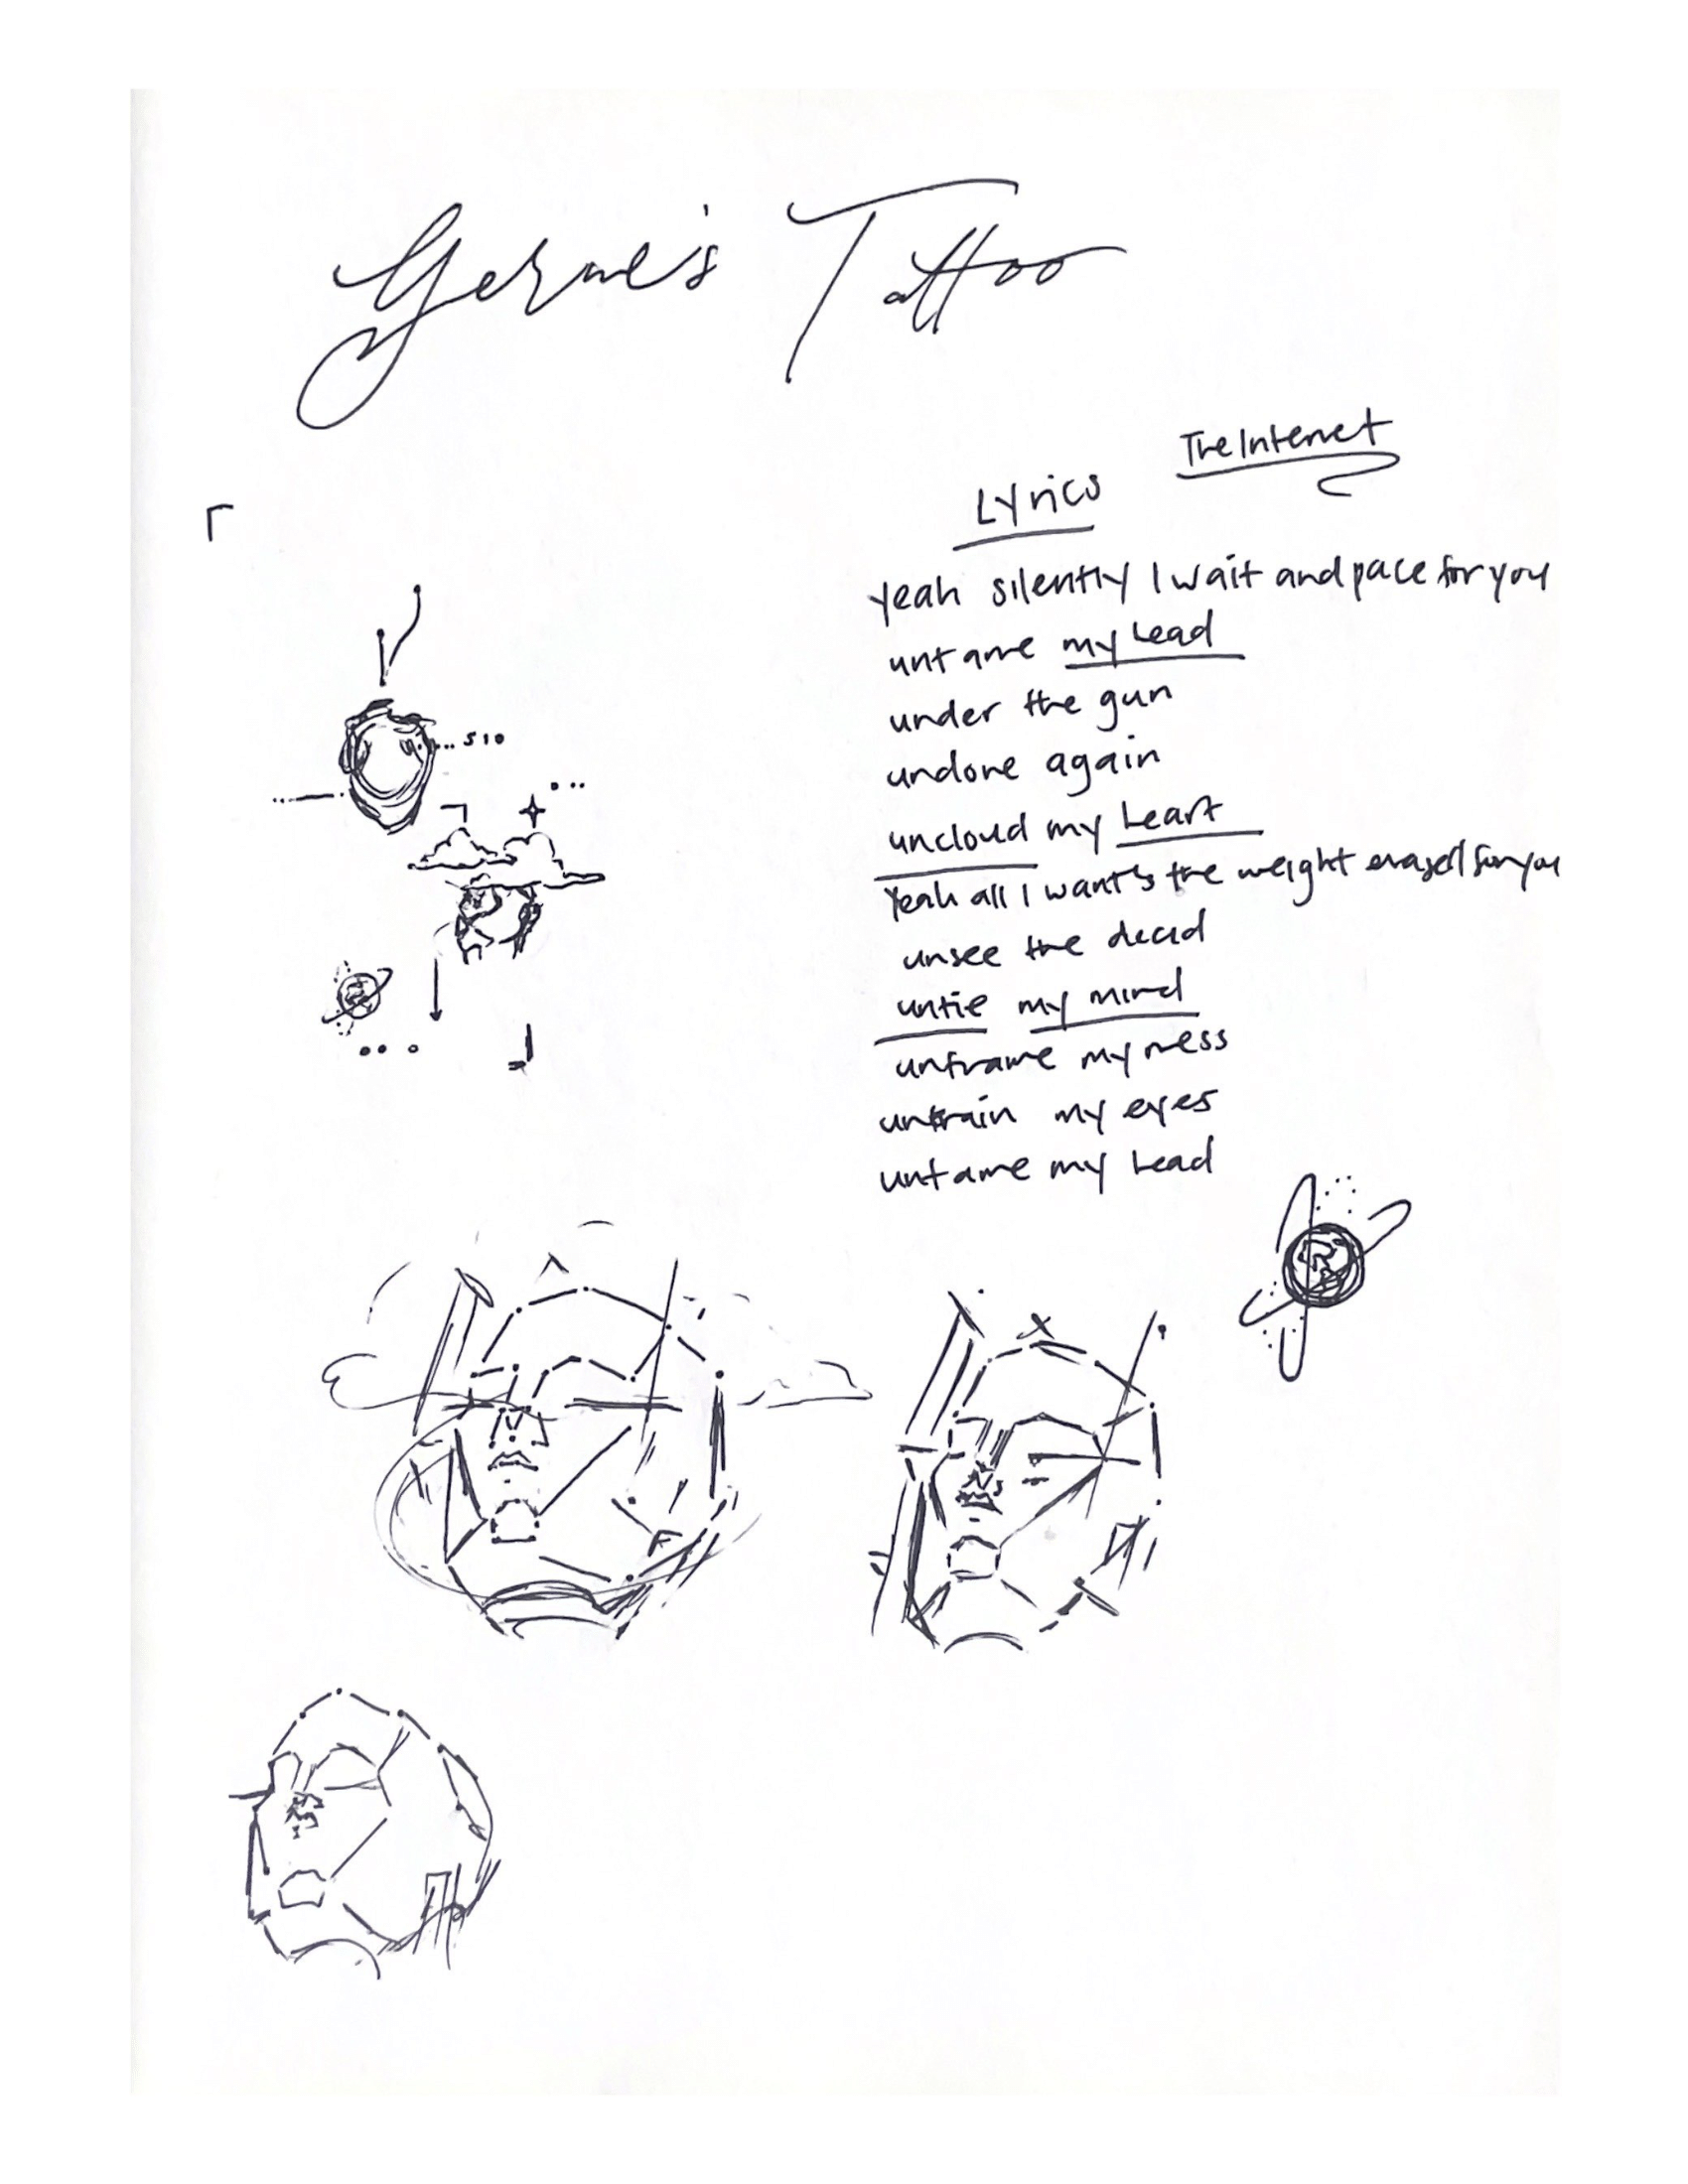 Tattoo
The Internet
Lyrics
yeah silently I wait and pace for you
untame my head
under the gun
undone again
uncloud my heart
Yeah all I want's the weight erased for you
unsee the
untie my mind
unframe my mess
untrain my eyes
untame my head